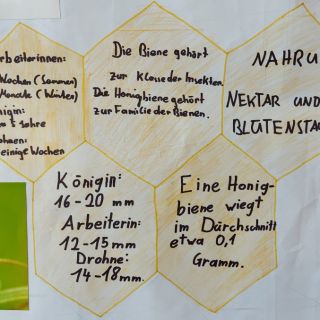 rbeiterinnen:
Wochen (Sommer)
Monate (Winter)
nigin:
5 Jahre
ohnen:
einige Wochen
Die Biene gehört
zur Klasse der Insekten.
Die Honigbiene gehört
zur Familie der Bienen.
NAHRU
NEKTAR UND
BLÜTENSTA
Königin:
16-20 mm
Arbeiterin:
12-15 mm
Drohne:
14-18 mm.
Eine Honig-
biene wiegt
im Dürchschnitt
etwa 0,1
Gramm.